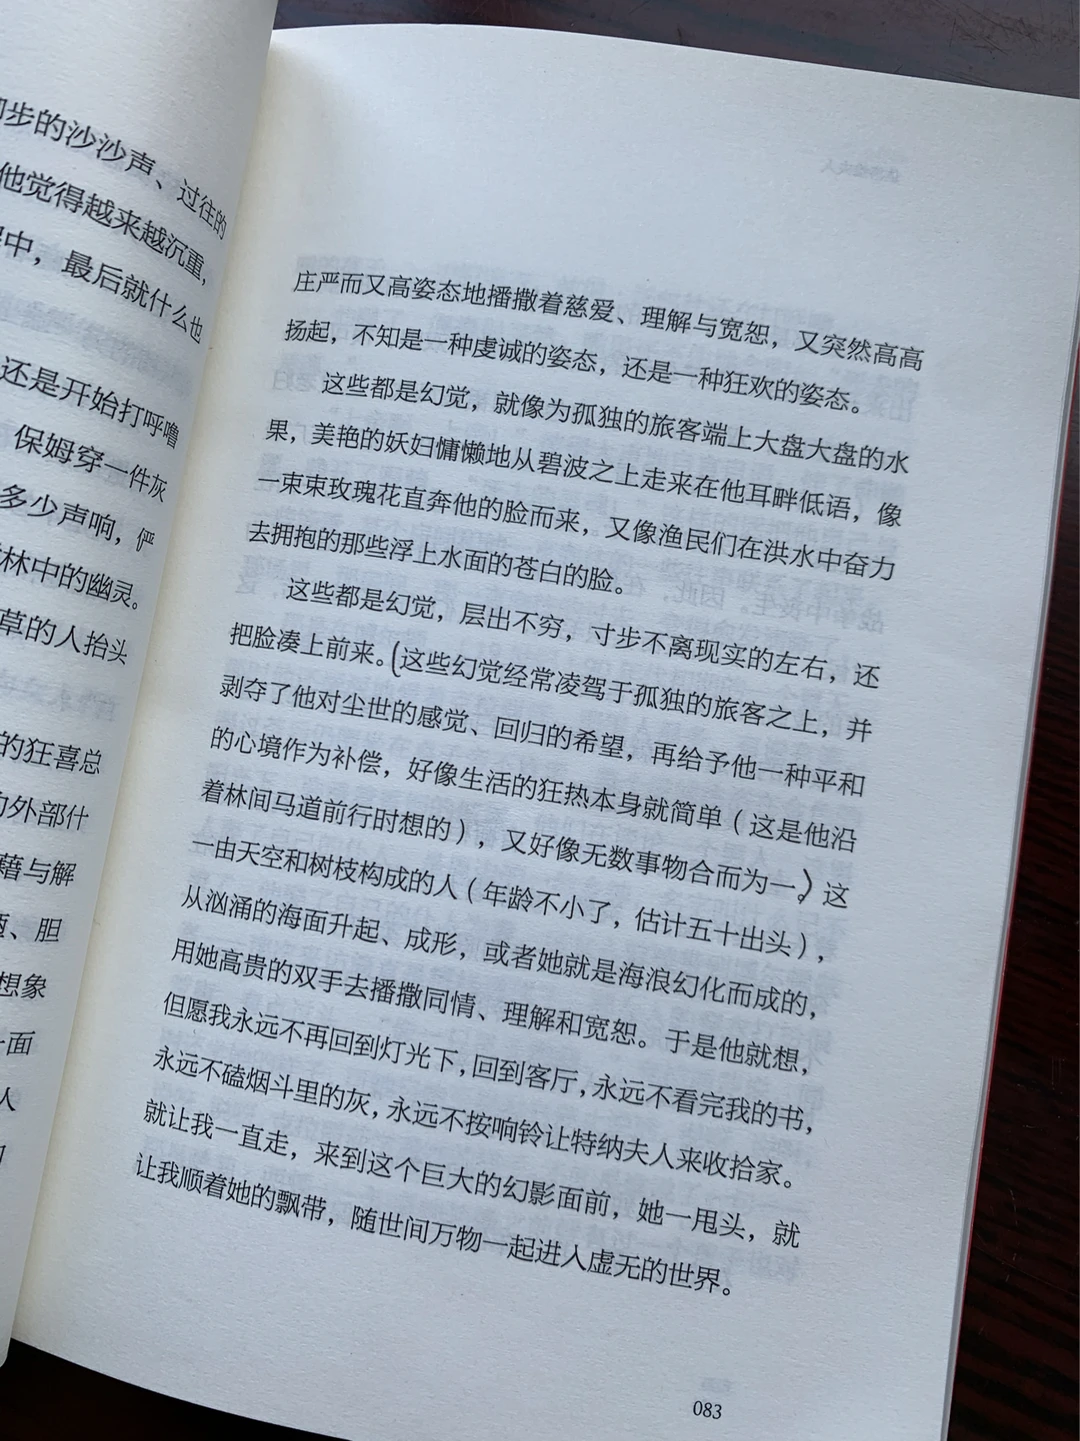 步的沙沙声、过往的
他觉得越来越沉重,
中，最后就什么也
还是开始打呼噜
保姆穿一件灰
多少声响，俨
林中的幽灵。
草的人抬头
的狂喜总
外部什
藉与解
、胆
想象
一面
人
庄严而又高姿态地播撒着慈爱、理解与宽恕，又突然高高
扬起，不知是一种虔诚的姿态，还是一种狂欢的姿态。
这些都是幻觉，就像为孤独的旅客端上大盘大盘的水
果，美艳的妖妇慵懒地从碧波之上走来在他耳畔低语，像
一束束玫瑰花直奔他的脸而来，又像渔民们在洪水中奋力
去拥抱的那些浮上水面的苍白的脸。
这些都是幻觉，层出不穷，寸步不离现实的左右，还
把脸凑上前来。这些幻觉经常凌驾于孤独的旅客之上，并
剥夺了他对尘世的感觉、回归的希望，再给予他一种平和
的心境作为补偿，好像生活的狂热本身就简单（这是他沿
着林间马道前行时想的），又好像无数事物合而为一，这
一由天空和树枝构成的人（年龄不小了，估计五十出头），
从汹涌的海面升起、成形，或者她就是海浪幻化而成的，
用她高贵的双手去播撒同情、理解和宽恕。于是他就想，
但愿我永远不再回到灯光下，回到客厅，永远不看完我的书，
永远不磕烟斗里的灰，永远不按响铃让特纳夫人来收拾家。
就让我一直走，来到这个巨大的幻影面前，她一甩头，就
让我顺着她的飘带，随世间万物一起进入虚无的世界。
083